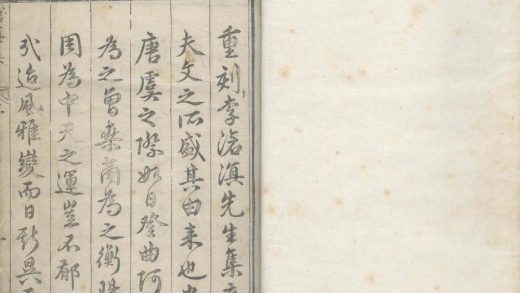 重刻李滄溟先生集
夫文之所盛其由来也
唐虞之際如日登曲阿
為之曾桑商為之衡陽
周為中天之運豈不郁
哉迨風雅變而日新異